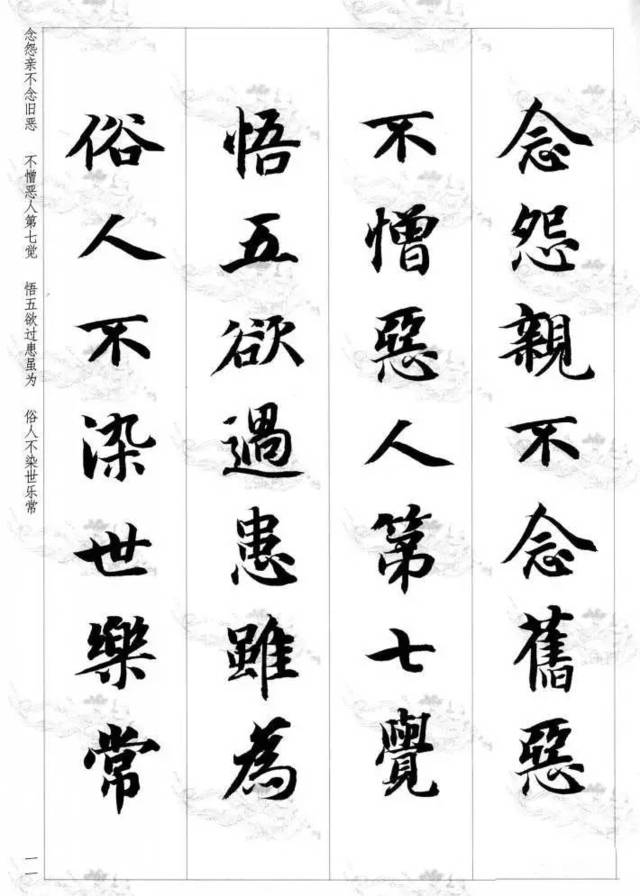 念怨親不念舊惡
不憎惡人第七覺
悟五欲過患雖為
俗人不染世樂常
念怨亲不念旧恶 不憎恶人第七觉 悟五欲过患虽为 俗人不染世乐常
一一